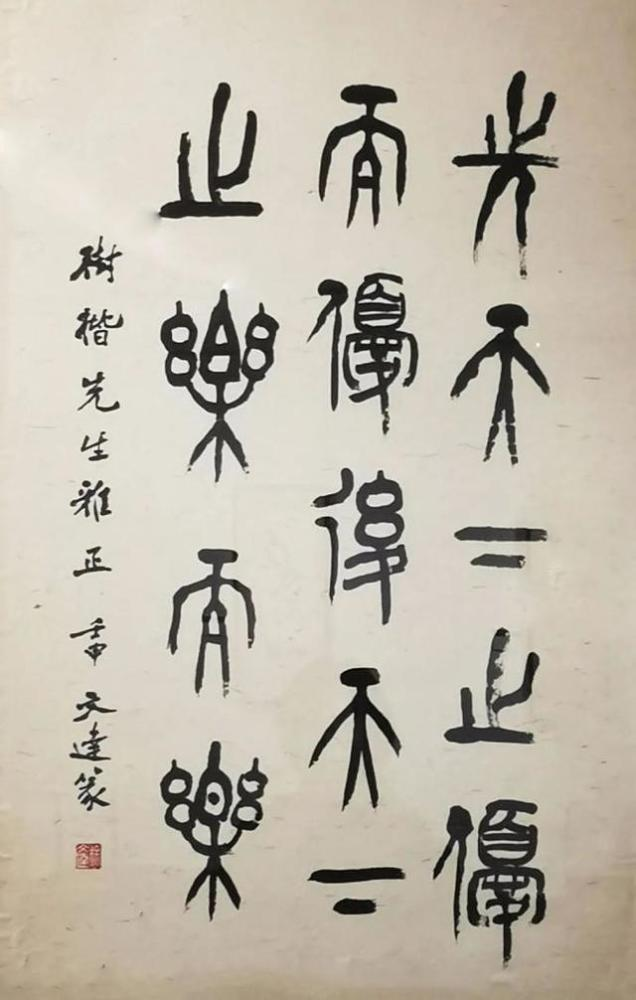 先天下之優
而優後天下
之樂而樂
樹楷先生雅正 壬申 文達篆